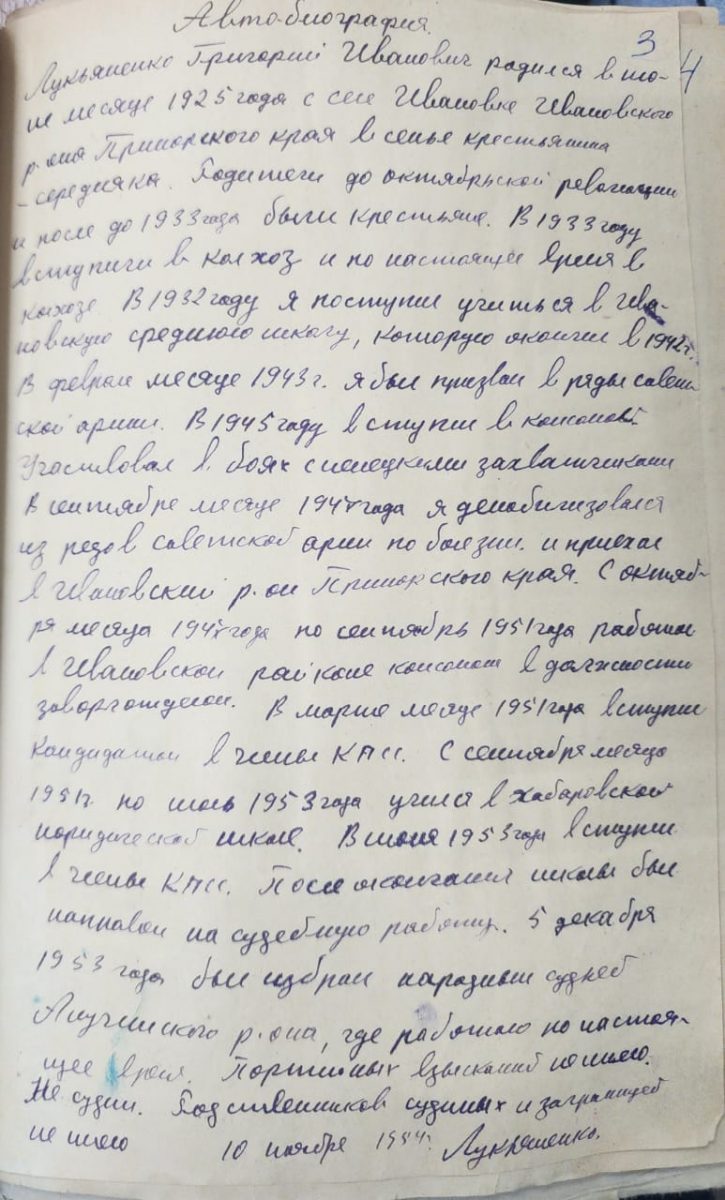 Автобиография.
3
4
Лукьяненко Григорий Иванович родился в ию-
не месяце 1925 года с селе Ивановке Ивановского
р-она Приморского края в семье крестьянина
-середняка. Родители до октябрьской революции
и после до 1933 года были крестьяне. В 1933 году
вступили в колхоз и по настоящее время в
колхозе. В 1932 году я поступил учиться в Ива-
новскую среднюю школу, которую окончил в 1942 г.
В феврале месяце 1943 г. я был призван в ряды совет
ской армии. В 1945 году вступил в комсомол.
Участвовал в боях с немецкими захватчиками
В сентябре месяце года я демобилизовался
из рядов советской арми по болезни. и приехал
в Ивановский р-он Приморского края. С октяб-
ря месяца года по сентябрь 1951 года работал
в Ивановском райкоме комсомола в должности
заворготделом. В марте месяце 1951 года вступил
кандидатом в члены КПСС. С сентября месяца
1951 г. по июль 1953 года учился в Хабаровской
юридической школе. В 1953 года вступил
в члены КПСС. После окончания школы был
направлен на судебную работу. 5 декабря
1953 года был избран народным судьей
Анучинского р-она, где работаю по настоя-
щее время. Партийных взысканий не имею.
Не судим. Родственников судимых и заграницей
не имею 10 ноября 1954 г. Лукьяненко.